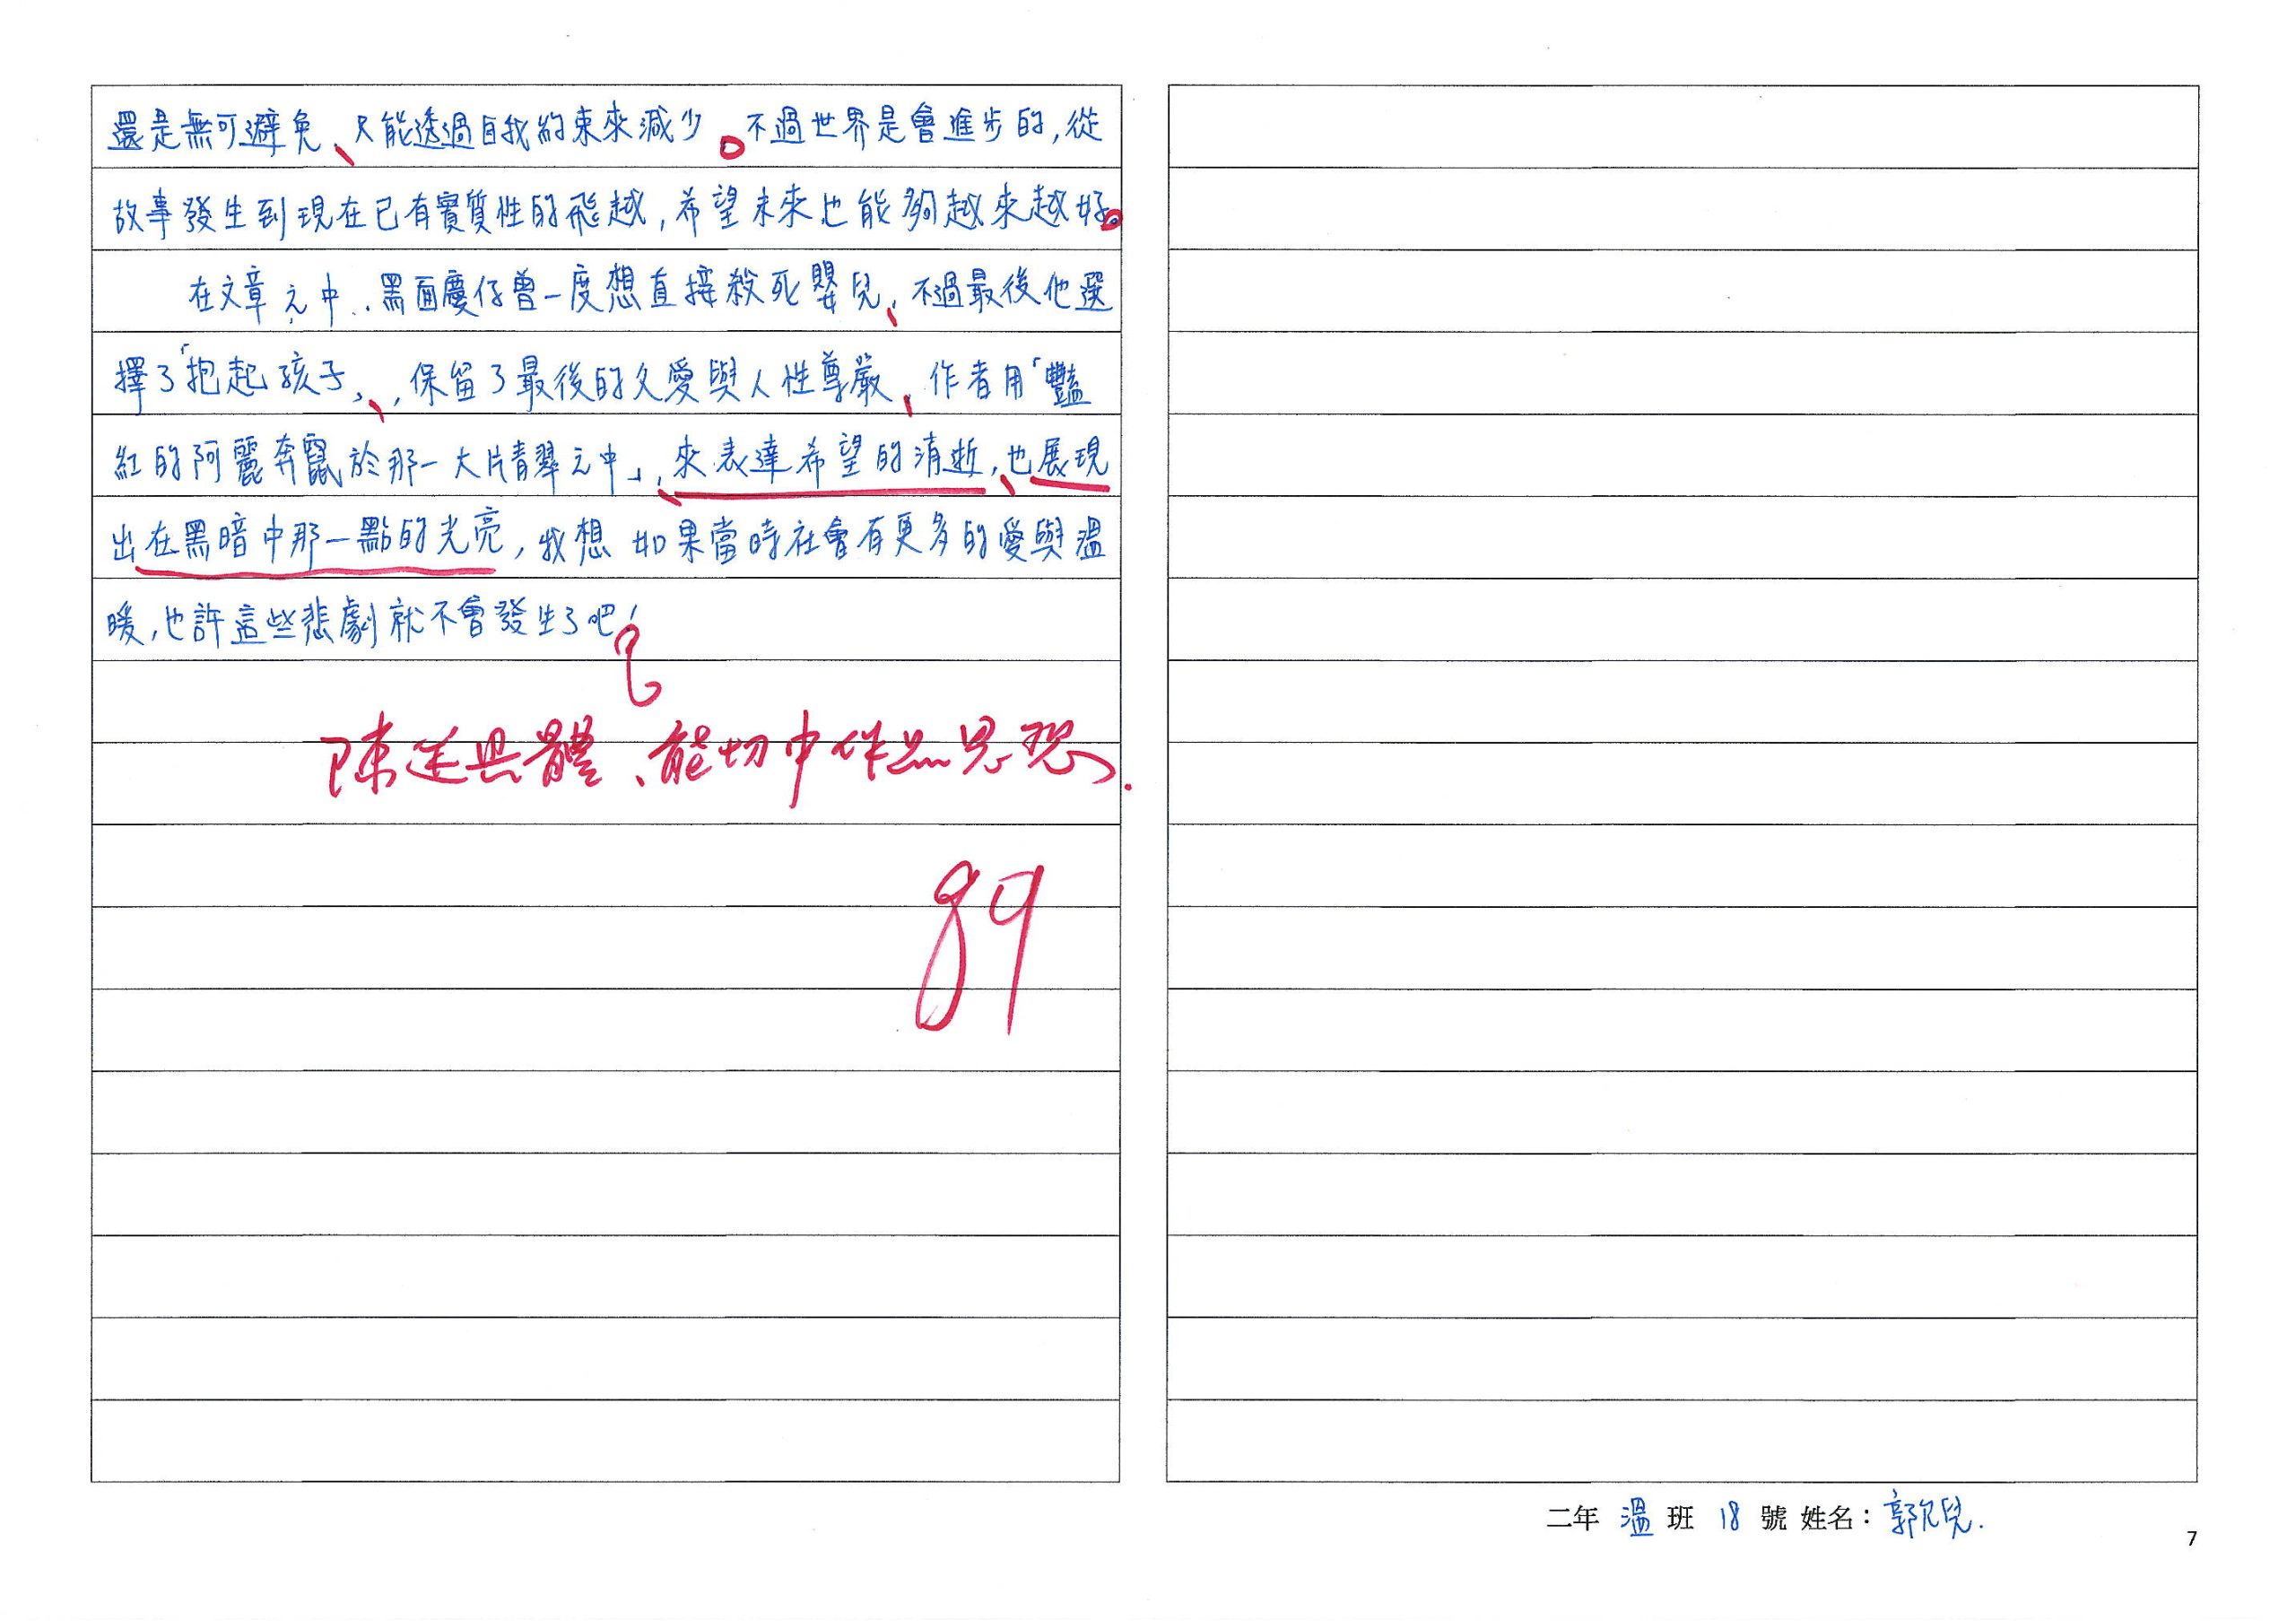 還是無可避免、只能透過自我約束來減少。不過世界是會進步的,從
故事發生到現在已有實質性的飛越,希望未來也能夠越來越好。
在文章之中、黑面慶仔曾一度想直接殺死嬰兒、不過最後他選
擇了「抱起孩子」,保留了最後的父愛與人性尊嚴、作者用「豔
紅的阿麗奔竄於那一大片青翠之中」,來表達希望的消逝,也展現
出在黑暗中那一點的光亮,我想如果當時社會有更多的愛與溫
暖,也許這些悲劇就不會發生了吧!
陳述具體、能切中作品思想.
89
二年 溫 班 18 號 姓名:郭 兒.
7